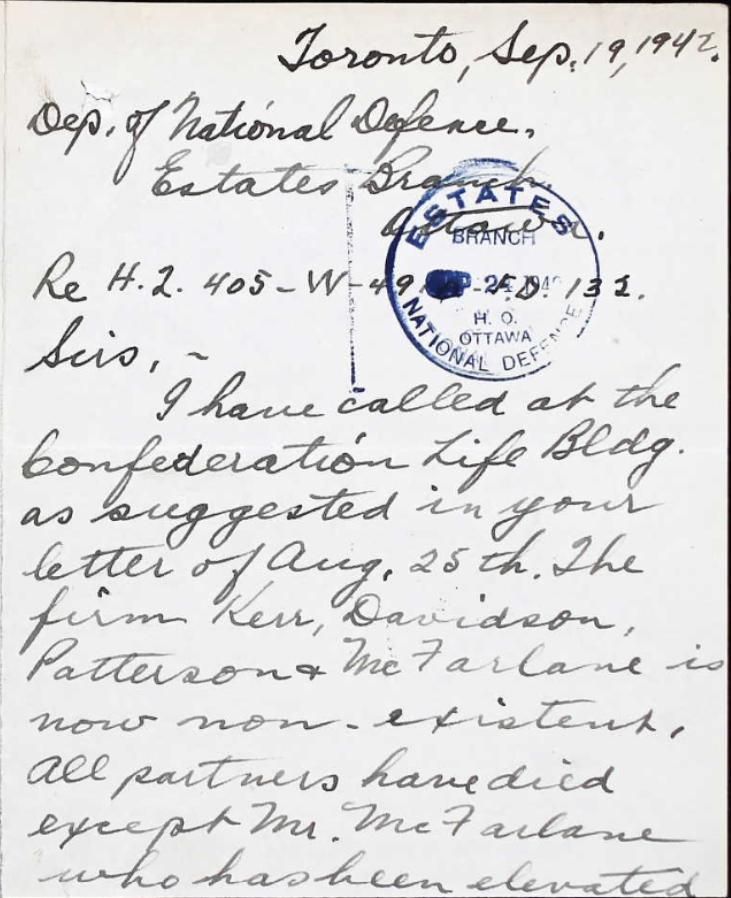 Toronto, Sep. 19, 1942.
Dep. of National Defence.
Estates Branch.
Ottawa.
ESTATES
BRANCH
H. Q.
OTTAWA
NATIONAL DEFENCE
Re H.Q. 405-W-49 F.D. 132.
Sirs, -
I have called at the
Confederation Life Bldg.
as suggested in your
letter of Aug. 25th. The
firm Kerr, Davidson,
Patterson & McFarlane is
now non-existent.
All partners have died
except Mr. McFarlane
who has been elevated